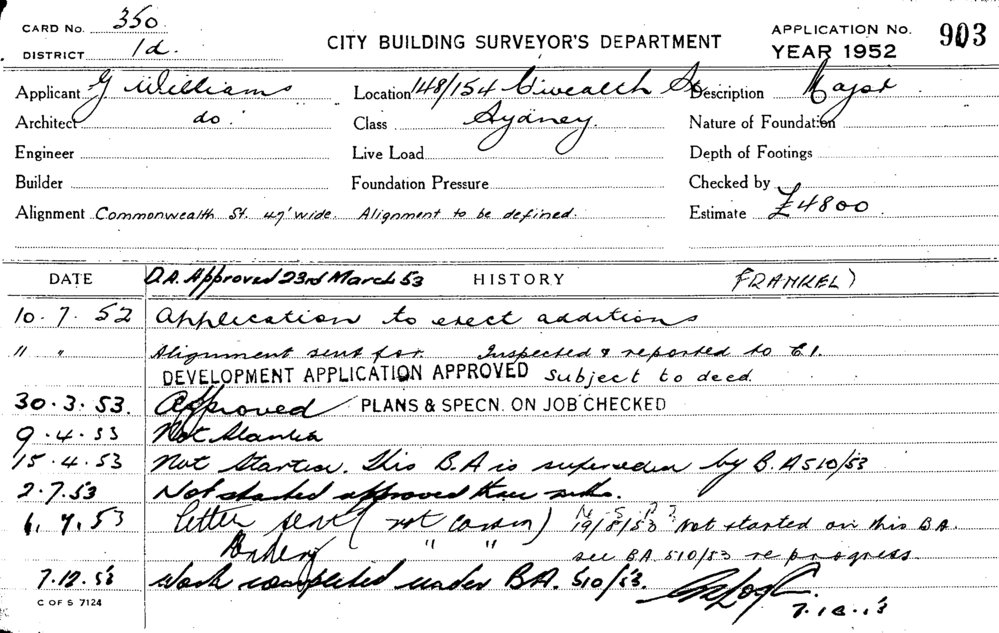 CARD No. 350
DISTRICT 1d.
CITY BUILDING SURVEYOR'S DEPARTMENT
APPLICATION No. 903
YEAR 1952
Applicant G Williams Location 148/154 C'wealth St Description Major
Architect do. Class Sydney. Nature of Foundation
Engineer Live Load Depth of Footings
Builder Foundation Pressure Checked by
Alignment Commonwealth St. 47' wide. Alignment to be defined. Estimate £4800
DATE D.A. Approved 23rd March 53 HISTORY FRANKEL)
10.7.52 Application to erect additions
" " Alignment sent for. Inspected & reported to C.I.
DEVELOPMENT APPLICATION APPROVED subject to deed.
30.3.53. Approved PLANS & SPECN. ON JOB CHECKED
9.4.53 Not Started
15.4.53 Not Started. This B.A is superseded by B.A 510/53
2.7.53 Not started approved
7.53 letter sent (not ) 19/8/53 Not started on this B.A.
" " see B.A. 510/53 re progress
7.12.53 Work completed under B.A. 510/53.
C OF S 7124